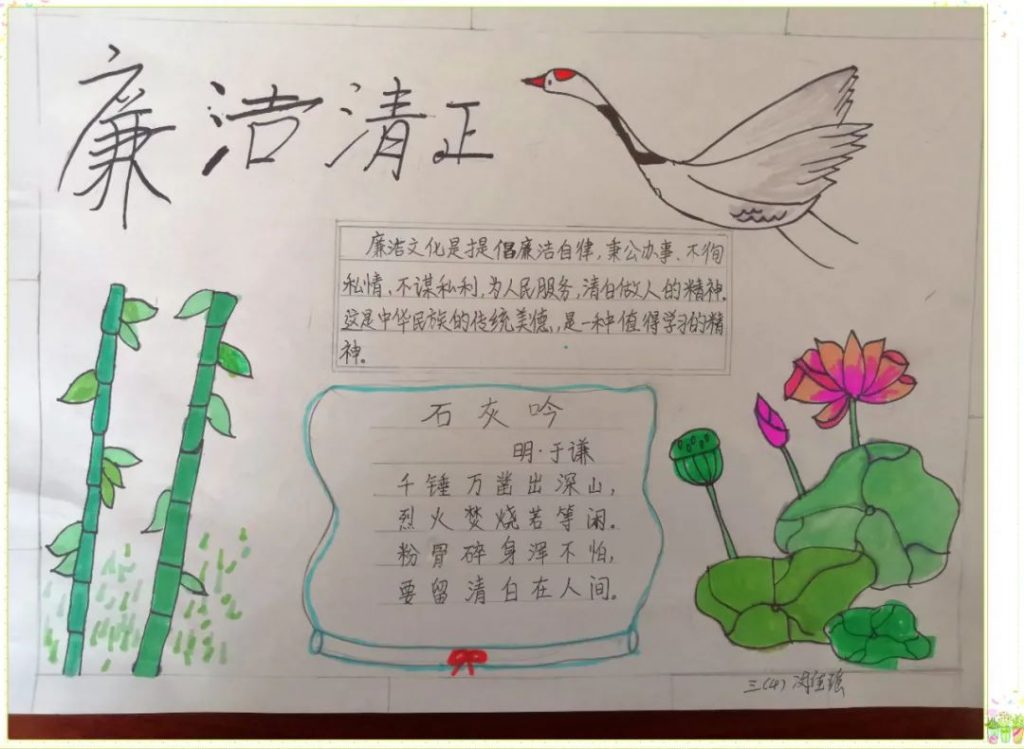 廉洁清正
廉洁文化是提倡廉洁自律,秉公办事、不徇
私情、不谋私利,为人民服务,清白做人的精神。
这是中华民族的传统美德,是一种值得学习的精
神。
石灰吟
明·于谦
千锤万凿出深山,
烈火焚烧若等闲。
粉骨碎身浑不怕,
要留清白在人间。
三(4)